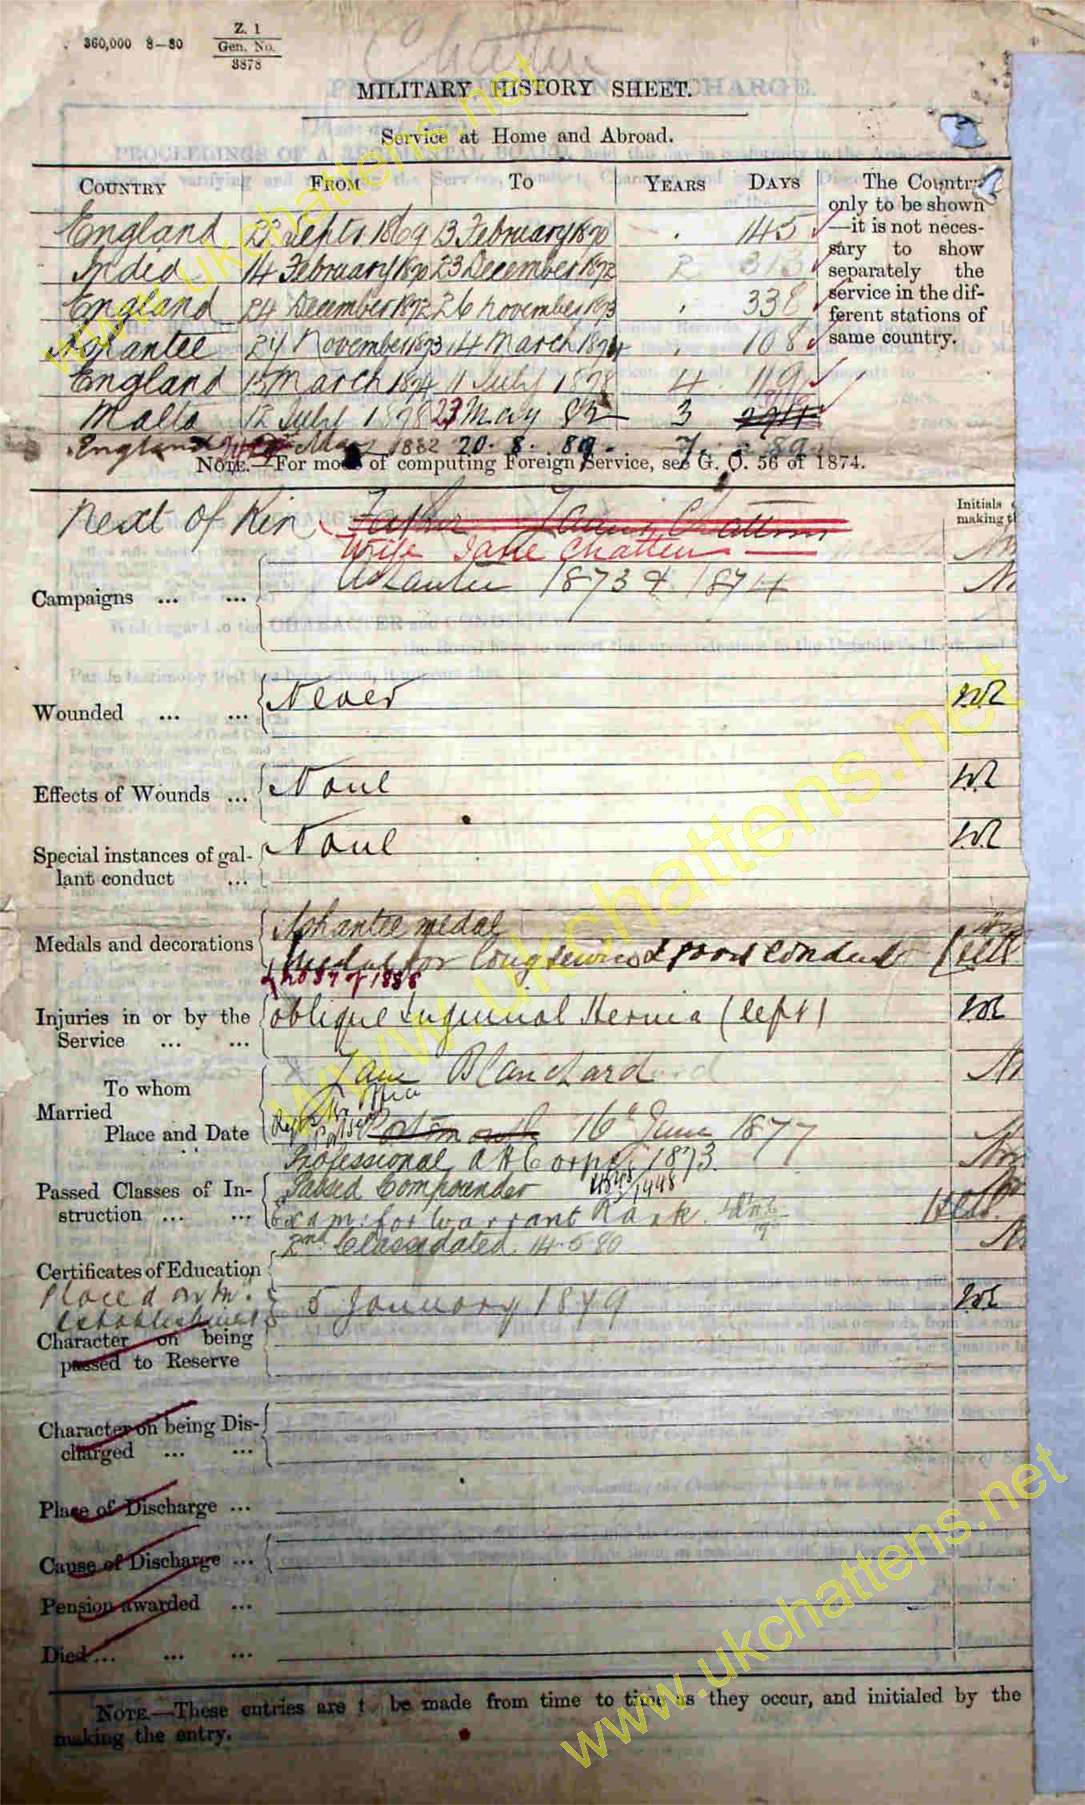 360,000 8—80
Z. 1
Gen. No.
3878
Chatten
MILITARY HISTORY SHEET.
Service at Home and Abroad.
COUNTRY FROM TO YEARS DAYS
The Country only to be shown—it is not necessary to show separately the service in the different stations of same country.
England 22 Septr 1869 13 February 1870 . 145
India 14 February 1870 23 December 1872 2 313
England 24 December 1872 26 November 1873 . 338
Ashantee 27 November 1873 14 March 1874 . 108
England 15 March 1874 11 July 1878 4 119
Malta 12 July 1878 23 May 82 3
England May 1882 20. 8. 89. 7. 89
NOTE.—For mode of computing Foreign Service, see G. O. 56 of 1874.
Next of Kin Father Chatten
Wife Jane Chatten
Initials
making t
Campaigns ... ... Ashantee 1873 & 1874
Wounded ... ... Never
Effects of Wounds ... None
Special instances of gal-
lant conduct ... None
Ashantee medal
Medals and decorations Medal for long service & good conduct
no 37 of 1888
Injuries in or by the
Service ... ... oblique Inguinal Hernia (left)
To whom Jane Blanchard
Married
Place and Date Portsmouth 16th June 1877
Professional A H Corps 1873
Passed Classes of In-
struction ... ... Passed Compounder
Exam: for Warrant Rank
2nd Class dated 14.5.80
Certificates of Education
Placed on m.
establishment 5 January 1879
Character on being
passed to Reserve
Character on being Dis-
charged ... ...
Place of Discharge ...
Cause of Discharge ...
Pension awarded ...
Died ... ... ...
NOTE.—These entries are t be made from time to time as they occur, and initialed by the
making the entry.
www.ukchattens.net
www.ukchattens.net
www.ukchattens.net